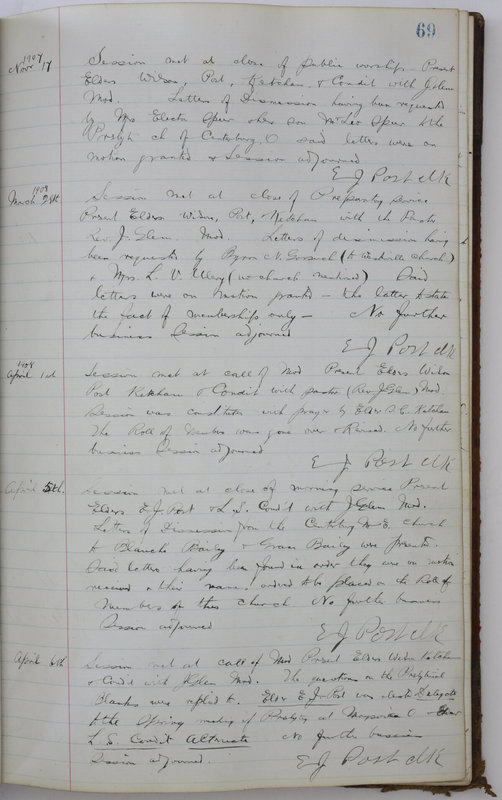 69
1907
Novr 17 Session met at close of public worship Present
Elders Wilson, Post, Ketcham, & Condit with J Glenn
Mod. Letters of Dismission having been requested
by Mrs Electa Speer & her son Mr Leo Speer to the
Presbyt ch of Centerburg, O said letters were on
motion granted & session adjourned
E J Post clk
1908
March 28th Session met at close of Preparatory service
Present Elders Wilson, Post, Ketcham with the Pastor
Rev. J. Glenn. Mod. Letters of dismission having
been requested by Byron N. (to church)
& Mrs. L. V. Ulery (no church mentioned) Said
letters were on motion granted – the latter to state
the fact of membership only – No further
business Session adjourned
E J Post clk
1908
April 1st Session met at call of Mod Present Elders Wilson
Post Ketcham & Condit with pastor (Rev J Glenn) Mod.
Session was constituted with prayer by Elder Ketcham
The Roll of Members was gone over & Revised. No further
business Session adjourned
E J Post clk
April 5th. Session met at close of morning service Present
Elders E. J. Post & L. S. Condit with J Glenn Mod.
Letters of Dismission from the Centerburg M. E. Church
to Blanche Bailey & Grace Bailey were presented.
Said letters having been found in order they were on motion
received & their names ordered to be placed on the Roll of
Members of this church. No further business
Session adjourned
E J Post clk
April 6th Session met at call of Mod Present Elders Wilson Ketcham
& Condit with J Glenn Mod. The questions on the Presbyterial
Blanks were replied to. Elder E. J. Post was elected Delegate
to the Spring meeting of Presbytery at O
L. S. Condit Alternate No further business
Session adjourned.
E J Post clk